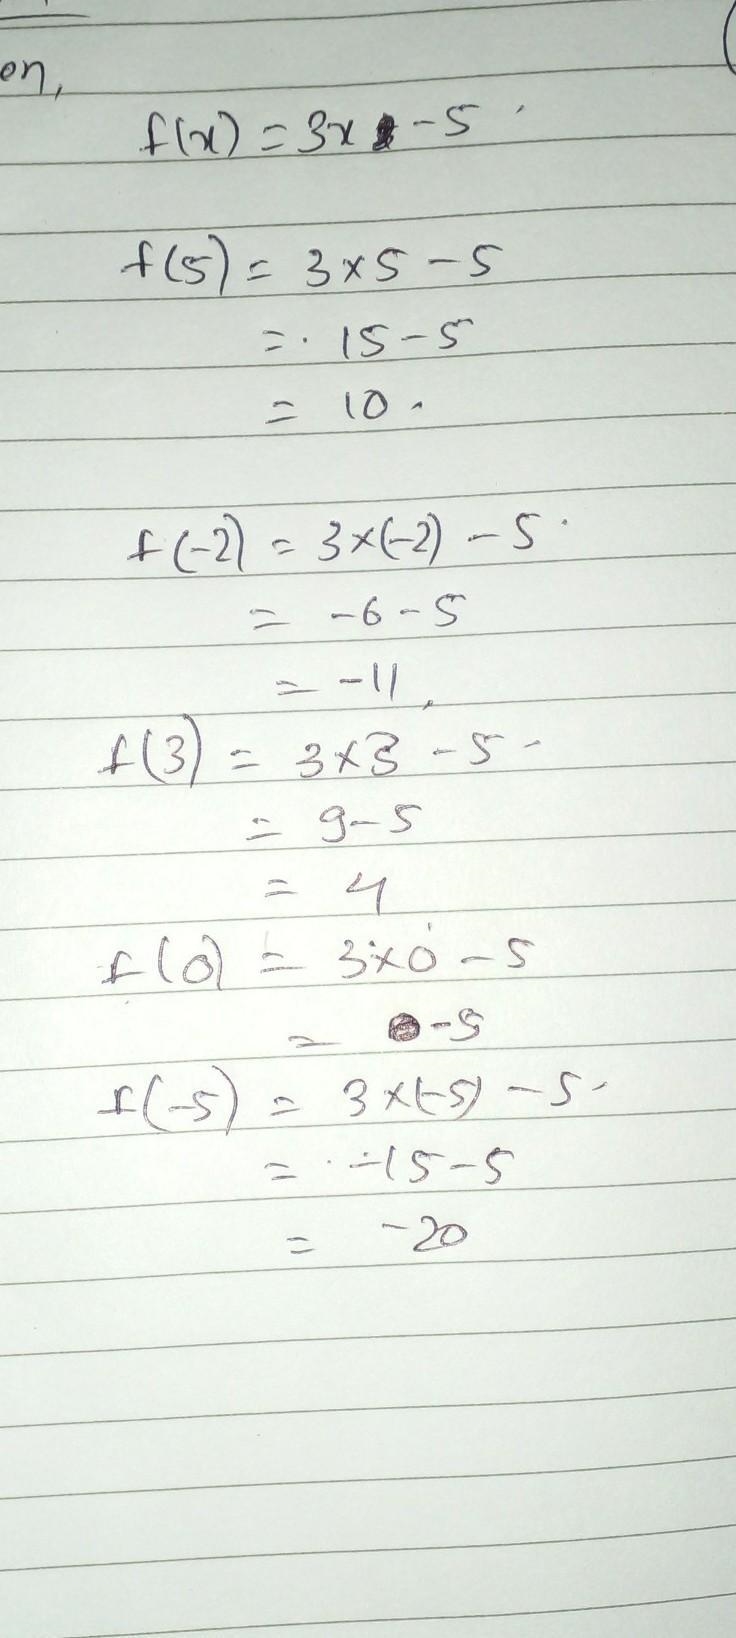 en,
f(x) = 3x - 5
f(5) = 3 × 5 - 5
= 15 - 5
= 10.
f(-2) = 3×(-2) - 5
= -6 - 5
= -11,
f(3) = 3×3 - 5
= 9 - 5
= 4
f(0) = 3×0 - 5
= -5
f(-5) = 3×(-5) - 5
= -15 - 5
= -20